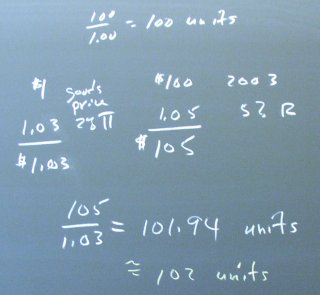 100/1.00 = 100 units
$1 goods price
1.03
$1.03
$100 2003
1.05 5% R
$105
105/1.03 = 101.94 units
≅ 102 units